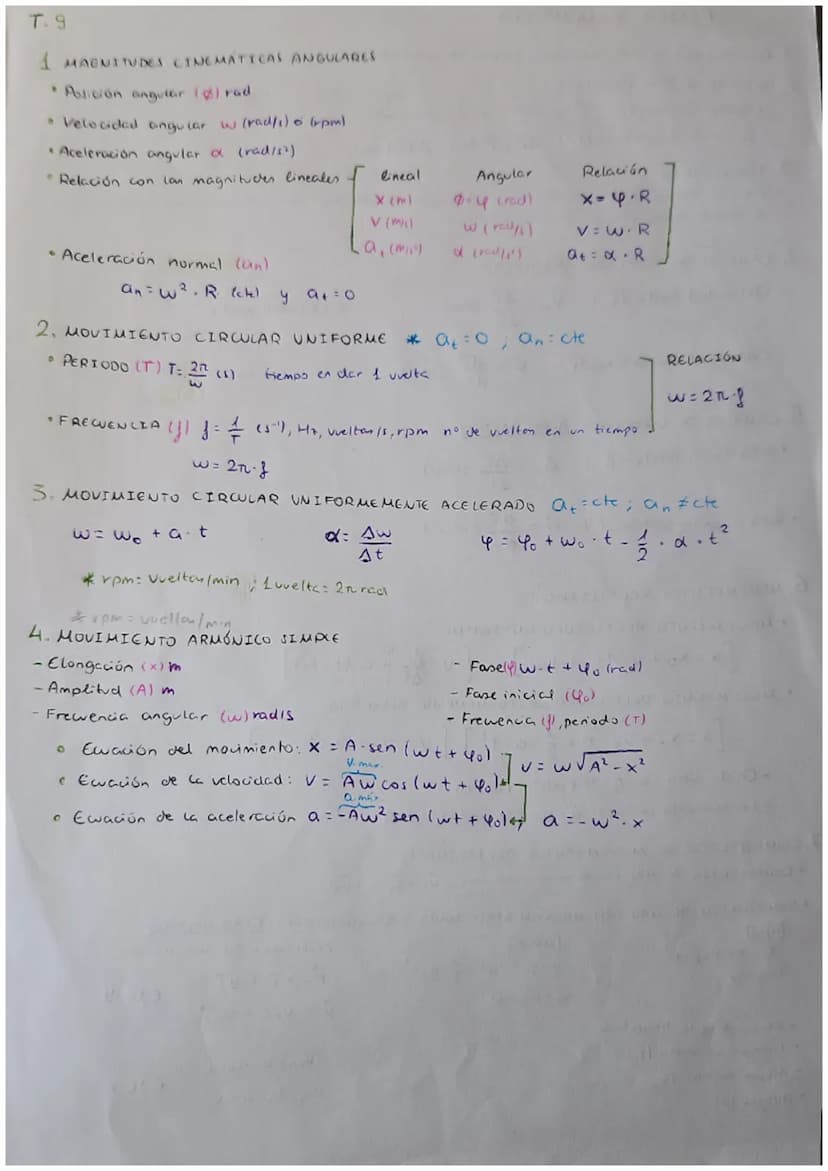 T. 9
1 MAGNITUDES CINEMÁTICAS ANGULARES
• Posición angular (φ) rad
• Velocidad angular ω (rad/s) ó (rpm)
• Aceleración angular α (rad/s²)
• Relación con las magnitudes lineales
lineal Angular Relación
x (m) φ = φ (rad) x = φ · R
v (m/s) ω (rad/s) v = ω · R
at (m/s²) α (rad/s²) at = α · R
• Aceleración normal (an)
an = ω² · R (cte) y at = 0
2. MOVIMIENTO CIRCULAR UNIFORME * at = 0 ; an = cte
• PERIODO (T) T = 2π/ω (s) tiempo en dar 1 vuelta
RELACIÓN
ω = 2π · f
• FRECUENCIA (f) f = 1/T (s⁻¹), Hz, vueltas/s, rpm nº de vueltas en un tiempo
ω = 2π · f
3. MOVIMIENTO CIRCULAR UNIFORMEMENTE ACELERADO at = cte ; an ≠ cte
ω = ω₀ + a · t α = Δω/Δt φ = φ₀ + ω₀ · t - 1/2 · α · t²
* rpm = vueltas/min ; 1 vuelta = 2π rad
* rpm = vueltas/min
4. MOVIMIENTO ARMÓNICO SIMPLE
- Elongación (x) m
- Amplitud (A) m
- Frecuencia angular (ω) rad/s
- Fase (φ) ω · t + φ₀ (rad)
- Fase inicial (φ₀)
- Frecuencia (f), periodo (T)
• Ecuación del movimiento: x = A · sen (ωt + φ₀)
v. max.
• Ecuación de la velocidad: v = Aω cos (ωt + φ₀) v = ω√A² - x²
a. máx
• Ecuación de la aceleración a = -Aω² sen (ωt + φ₀) a = -ω² · x